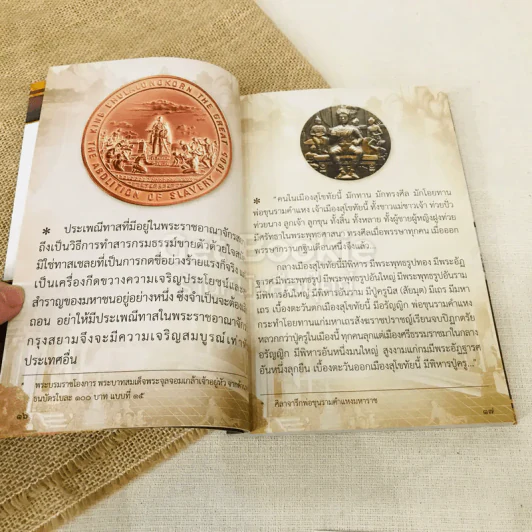 KING CHULALONGKORN THE GREAT
THE ABOLITION OF SLAVERY 1905
* ประเพณีทาสที่มีอยู่ในพระราชอาณาจักรส
ถือเป็นวิธีการทำสารกรมธรรม์ขายตัวด้วยใจสมั
มิใช่ทาสเชลยที่เป็นการกดขี่อย่างร้ายแรงก็จริง
เป็นเครื่องกีดขวางความเจริญประโยชน์และ
สำราญของมหาชนอยู่อย่างหนึ่ง ซึ่งจำเป็นจะต้อง
ถอน อย่าให้มีประเพณีทาสในพระราชอาณาจัก
กรุงสยามจึงจะมีความเจริญสมบูรณ์เท่า
ประเทศอื่น
* พระบรมราชโองการ พระบาทสมเด็จพระจุลจอมเกล้าเจ้าอยู่หัว จาก
ธนบัตรใบละ ๑๐๐ บาท แบบที่ ๑๕
๑๖
* "คนในเมืองสุโขทัยนี้ มักทาน มักทรงศีล มักโอยทาน
พ่อขุนรามคำแหง เจ้าเมืองสุโขทัยนี้ ทั้งชาวแม่ชาวเจ้า ท่วยปั่ว
ท่วยนาง ลูกเจ้า ลูกขุน ทั้งสิ้น ทั้งหลาย ทั้งผู้ชายผู้หญิงฝูงท่วย
มีศรัทธาในพระพุทธศาสนา ทรงศีลเมื่อพรรษาทุกคน เมื่อออก
พรรษากรานกฐินเดือนหนึ่งจึงแล้ว
กลางเมืองสุโขทัยนี้มีพิหาร มีพระพุทธรูปทอง มีพระอัฏ
ฐารศ มีพระพุทธรูป มีพระพุทธรูปอันใหญ่ มีพระพุทธรูปอันราม
มีพิหารอันใหญ่ มีพิหารอันราม มีปู่ครูนิส มีเถร มีมหา
เถร เบื้องตะวันตกเมืองสุโขทัยนี้ มีอรัญญิก พ่อขุนรามคำแหง
กระทำโอยทานแก่มหาเถรสังฆราชปราชญ์เรียนจบปิฎกตรัย
หลวกกว่าปู่ครูในเมืองนี้ ทุกคนลุกแต่เมืองศรีธรรมราชมาในกลาง
อรัญญิก มีพิหารอันหนึ่งมนใหญ่ สูงงามแก่กมมีพระอัฏฐารศ
อันหนึ่งลุกยืน เบื้องตะวันออกเมืองสุโขทัยนี้ มีพิหารมีปู่ครู..."
* ศิลาจารึกพ่อขุนรามคำแหงมหาราช
๑๗